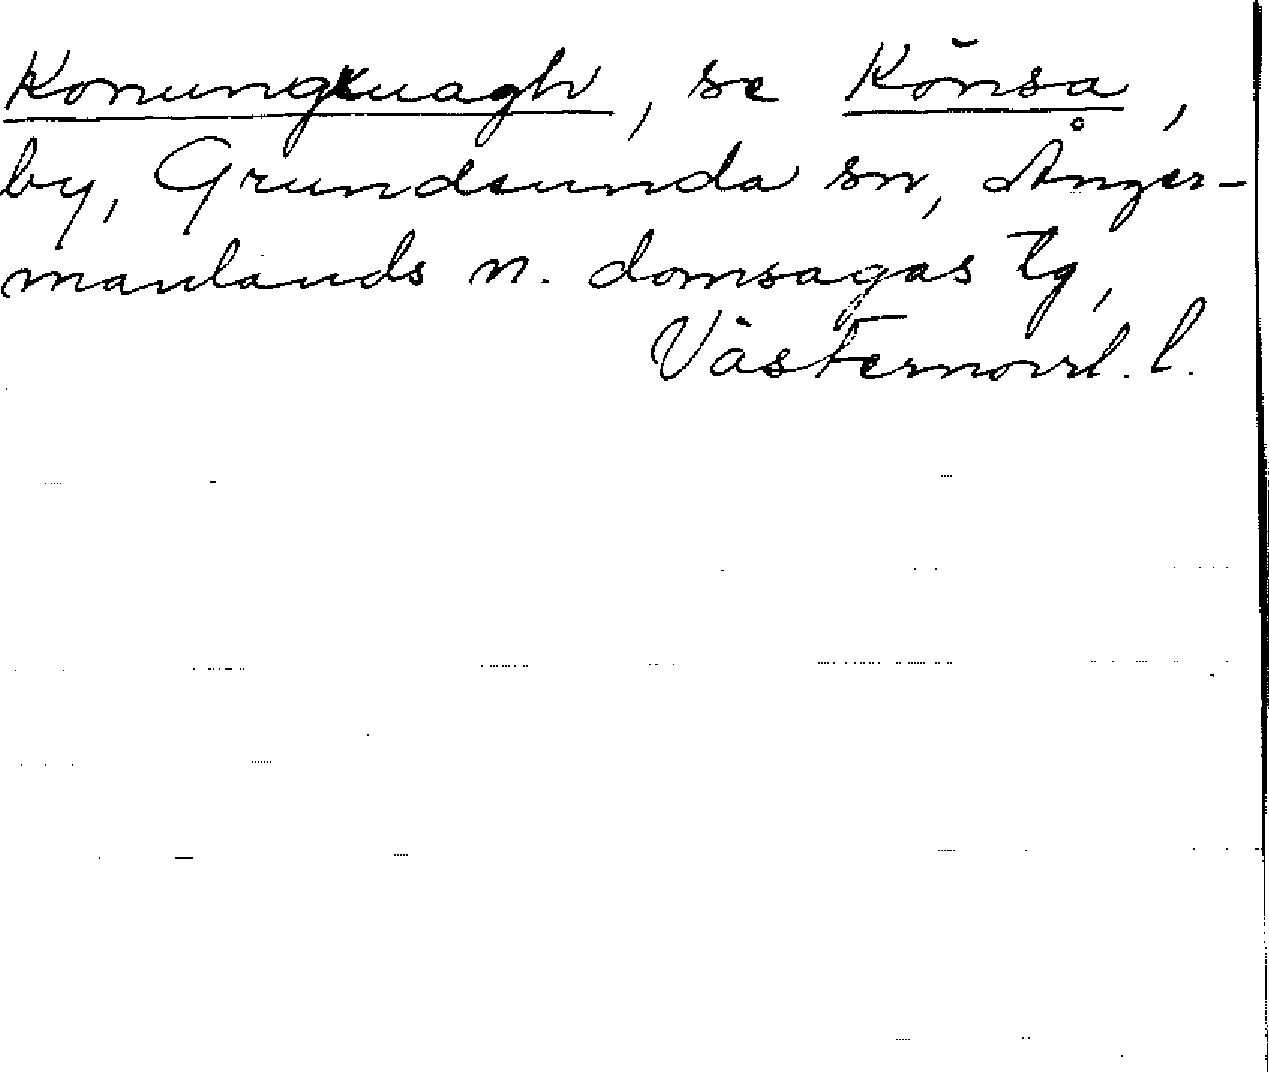 Konungxuagh, se Könsa,
by, Grundsunda sn, Ånger-
manlands n. domsagas tg,
Västernorrl. l.